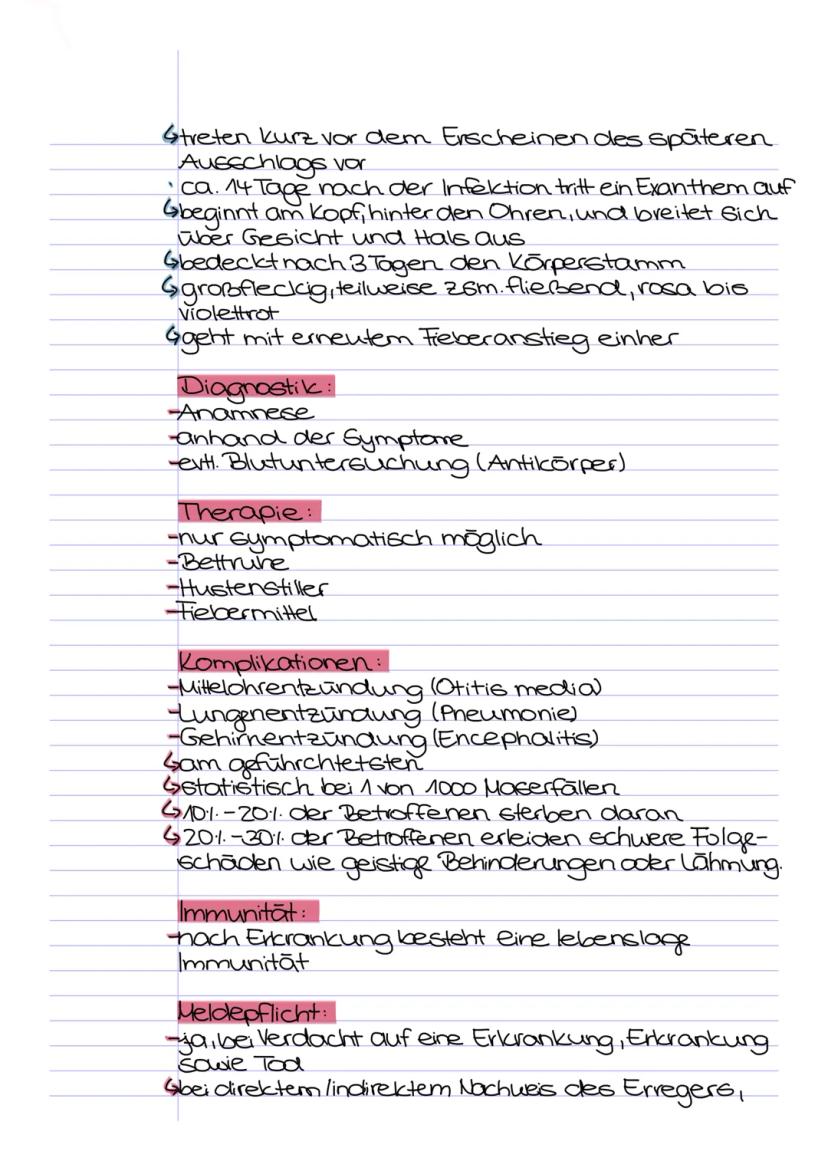 ↳treten kurz vor dem Erscheinen des späteren
Ausschlags vor
· ca. 14 Tage nach der Infektion tritt ein Exanthem auf
↳beginnt am Kopf, hinter den Ohren, und breitet sich
über Gesicht und Hals aus
↳bedeckt nach 3 Tagen den Körperstamm
↳großfleckig, teilweise zsm. fließend, rosa bis
violettrot
↳geht mit erneutem Fieberanstieg einher
Diagnostik:
-Anamnese
-anhand der Symptome
-evtl. Blutuntersuchung (Antikörper)
Therapie:
-nur symptomatisch möglich
-Bettruhe
-Hustenstiller
-Fiebermittel
Komplikationen:
-Mittelohrentzündung (Otitis media)
-Lungenentzündung (Pneumonie)
-Gehirnentzündung (Encephalitis)
↳am geführchtetsten
↳statistisch bei 1 von 1000 Maserfällen
↳10% - 20% der Betroffenen sterben daran
↳20% - 30% der Betroffenen erleiden schwere Folge-
schäden wie geistige Behinderungen oder Lähmung.
Immunität:
-nach Erkrankung besteht eine lebenslage
Immunität
Meldepflicht:
-ja, bei Verdacht auf eine Erkrankung, Erkrankung
sowie Tod
↳bei direktem/indirektem Nachweis des Erregers,